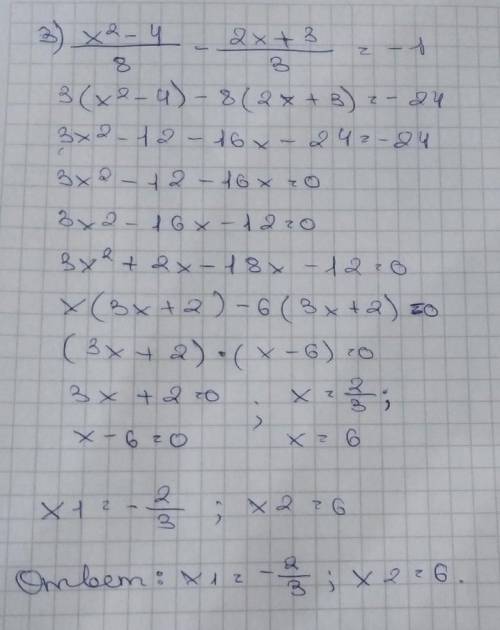 3) x² - 4 / 8 - 2x + 3 / 3 = - 1
3(x² - 4) - 8(2x + 3) = - 24
3x² - 12 - 16x - 24 = - 24
3x² - 12 - 16x = 0
3x² - 16x - 12 = 0
3x² + 2x - 18x - 12 = 0
x(3x + 2) - 6(3x + 2) = 0
(3x + 2) · (x - 6) = 0
3x + 2 = 0 ; x = 2/3;
x - 6 = 0 x = 6
x1 = - 2/3 ; x2 = 6
Ответ: x1 = - 2/3 ; x2 = 6.